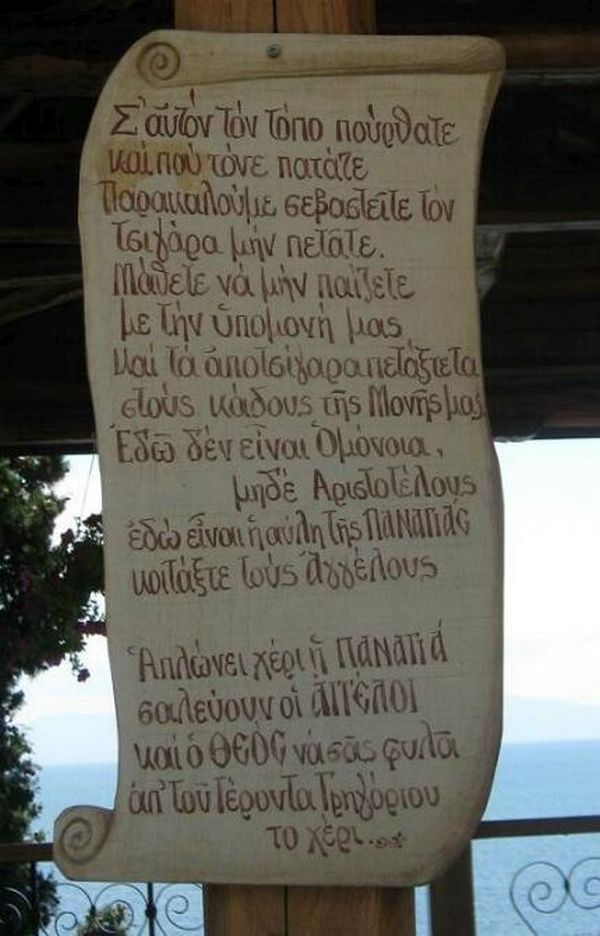 Σ' αὐτόν τόν τόπο πούρθατε
καί πού τόνε πατάτε
Παρακαλοῦμε σεβαστεῖτε τόν
τσιγάρα μήν πετάτε.
Μάθετε νά μήν παίζετε
με τήν ὑπομονή μας
καί τά ἀποτσίγαρα πετάξτε τα
στούς κάδους τῆς Μονῆς μας.
Ἐδῶ δέν εἶναι Ὁμόνοια,
μηδέ Αριστοτέλους
ἐδῶ εἶναι ἡ αὐλη τῆς ΠΑΝΑΓΙΑΣ
κοιτάξτε τούς Ἀγγέλους
Ἁπλώνει χέρι ἡ ΠΑΝΑΓΙΑ
σαλεύουν οἱ ἈΓΓΕΛΟΙ
καί ὁ ΘΕΟΣ νά σᾶς φυλᾶ
ἀπ' τοῦ Γέροντα Γρηγόριου
το χέρι...